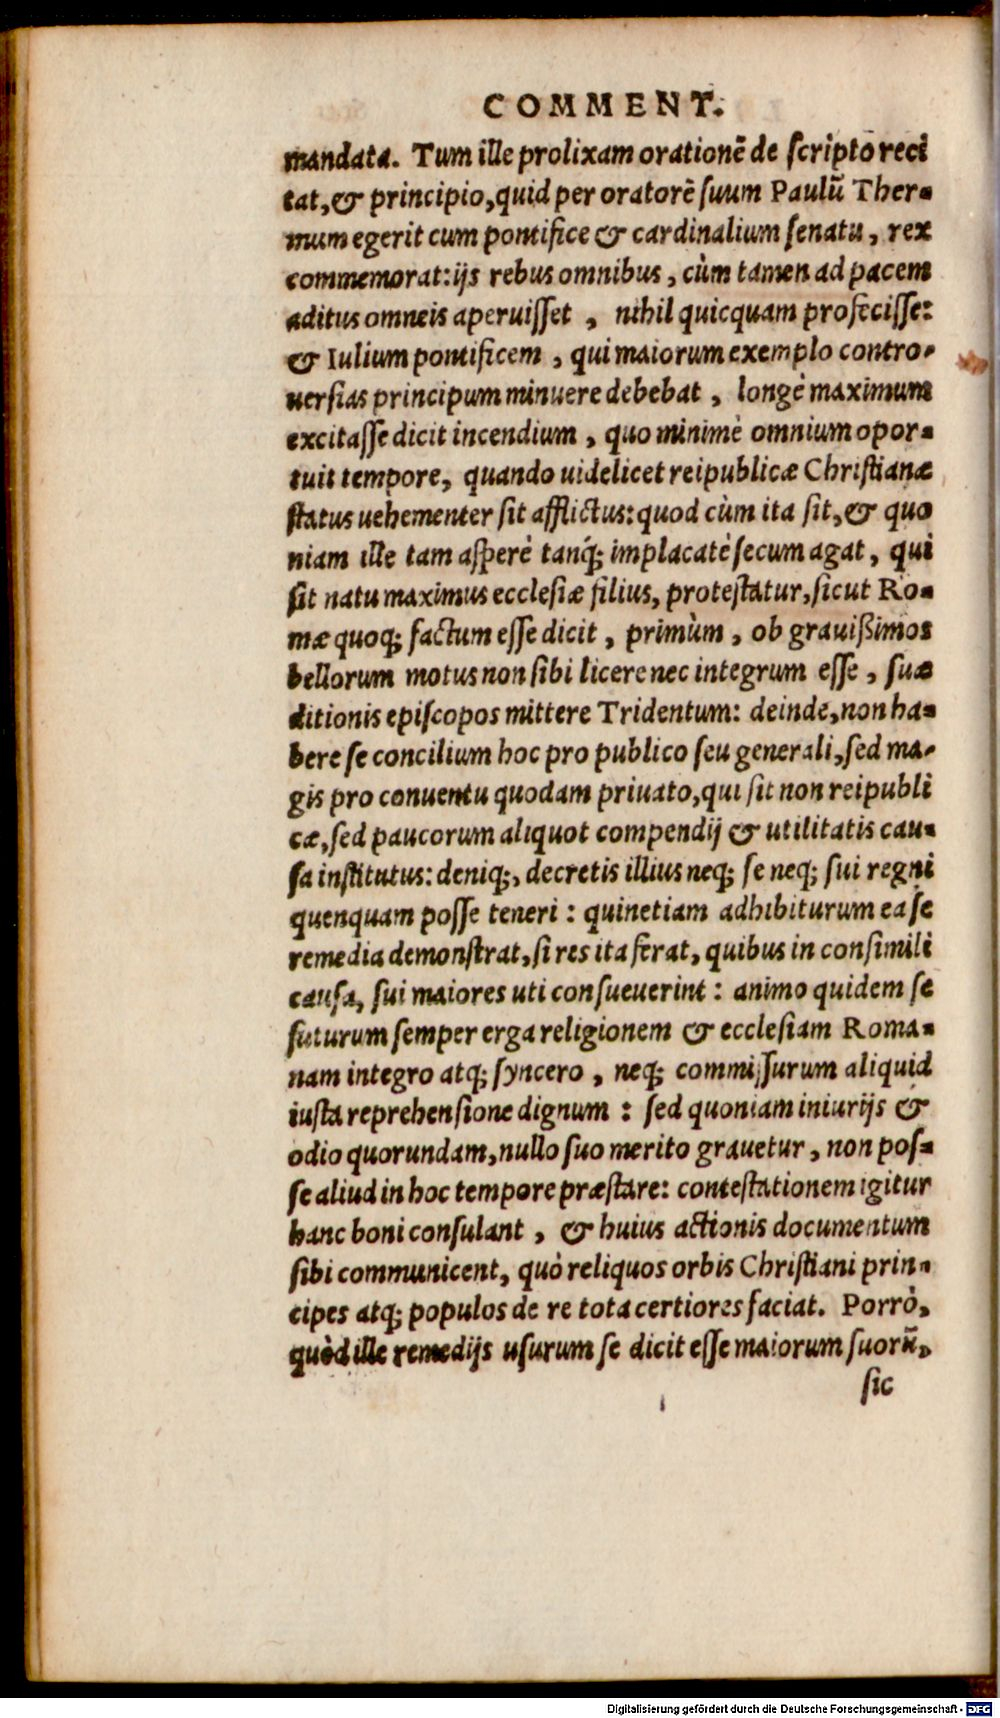 COMMENT.
mandata. Tum ille prolixam orationẽ de scripto reci
tat, & principio, quid per oratorẽ suum Paulũ Ther-
mum egerit cum pontifice & cardinalium senatu, rex
commemorat: ijs rebus omnibus, cùm tamen ad pacem
aditus omneis aperuisset, nihil quicquam profecisse:
& Iulium pontificem, qui maiorum exemplo contro-
uersias principum minuere debebat, longè maximum
excitasse dicit incendium, quo minimè omnium opor-
tuit tempore, quando uidelicet reipublicæ Christianæ
status uehementer sit afflictus: quod cùm ita sit, & quo
niam ille tam asperè tanq́; implacatè secum agat, qui
sit natu maximus ecclesiæ filius, protestatur, sicut Ro-
mæ quoq; factum esse dicit, primùm, ob grauißimos
bellorum motus non sibi licere nec integrum esse, suæ
ditionis episcopos mittere Tridentum: deinde, non ha-
bere se concilium hoc pro publico seu generali, sed ma-
gis pro conuentu quodam priuato, qui sit non reipubli
cæ, sed paucorum aliquot compendij & utilitatis cau-
sa institutus: deniq;, decretis illius neq; se neq; sui regni
quenquam posse teneri: quinetiam adhibiturum ea se
remedia demonstrat, si res ita ferat, quibus in consimili
causa, sui maiores uti consueuerint: animo quidem se
futurum semper erga religionem & ecclesiam Roma-
nam integro atq; syncero, neq; commissurum aliquid
iusta reprehensione dignum: sed quoniam iniurijs &
odio quorundam, nullo suo merito grauetur, non pos-
se aliud in hoc tempore præstare: contestationem igitur
hanc boni consulant, & huius actionis documentum
sibi communicent, quò reliquos orbis Christiani prin-
cipes atq; populos de re tota certiores faciat. Porrò,
quòd ille remedijs usurum se dicit esse maiorum suorũ,
sic
Digitalisierung gefördert durch die Deutsche Forschungsgemeinschaft - DFG